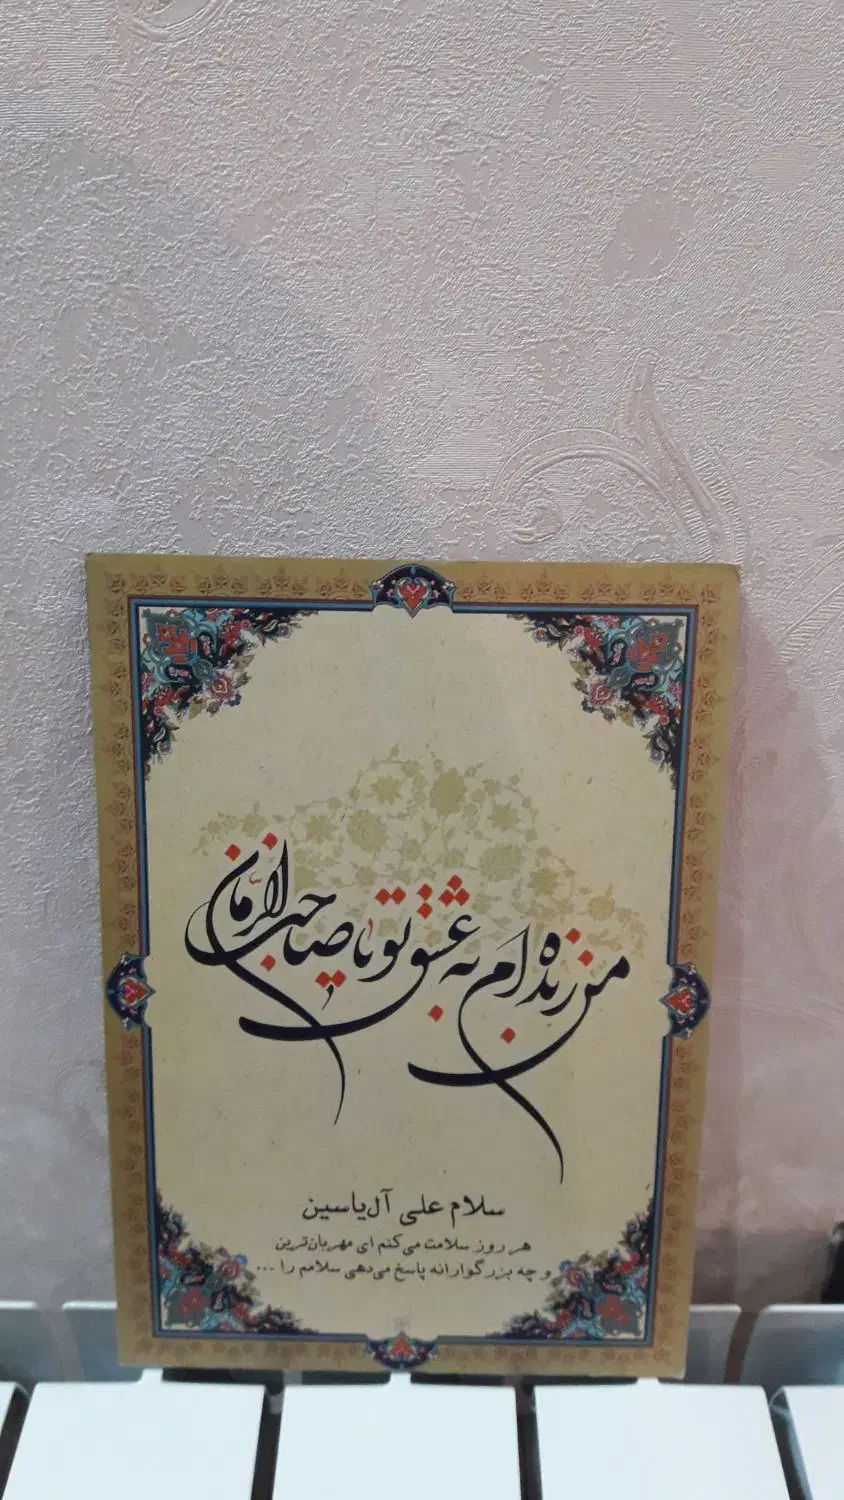 من زنده ام به عشق تو یا صاحب الزمان
سلام علی آل یاسین
هر روز سلامت می کنم ای مهربان ترین
و چه بزرگوارانه پاسخ می دهی سلامم را ...